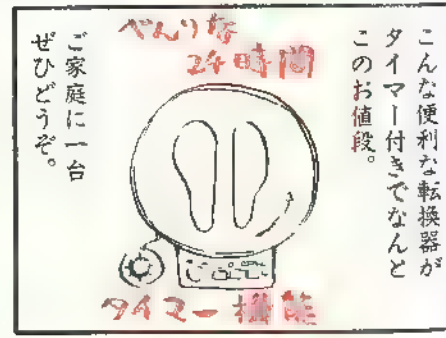 こんな便利な転換器が
タイマー付きでなんと
このお値段。
べんりな
24時間
タイマー機能
ご家庭に一台
ぜひどうぞ。